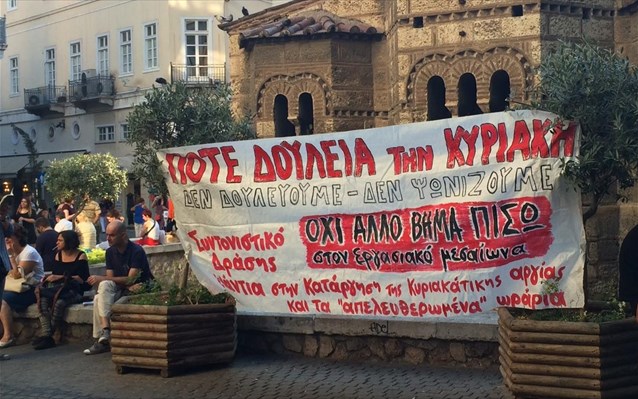 ΠΟΤΕ ΔΟΥΛΕΙΑ ΤΗΝ ΚΥΡΙΑΚΗ
ΔΕΝ ΔΟΥΛΕΥΟΥΜΕ - ΔΕΝ ΨΩΝΙΖΟΥΜΕ
ΟΧΙ ΑΛΛΟ ΒΗΜΑ ΠΙΣΩ
στον εργασιακό μεσαίωνα
Συντονιστικό
Δράσης
ενάντια στην Κατάργηση της Κυριακάτικης αργίας
και τα "απελευθερωμένα" ωράρια